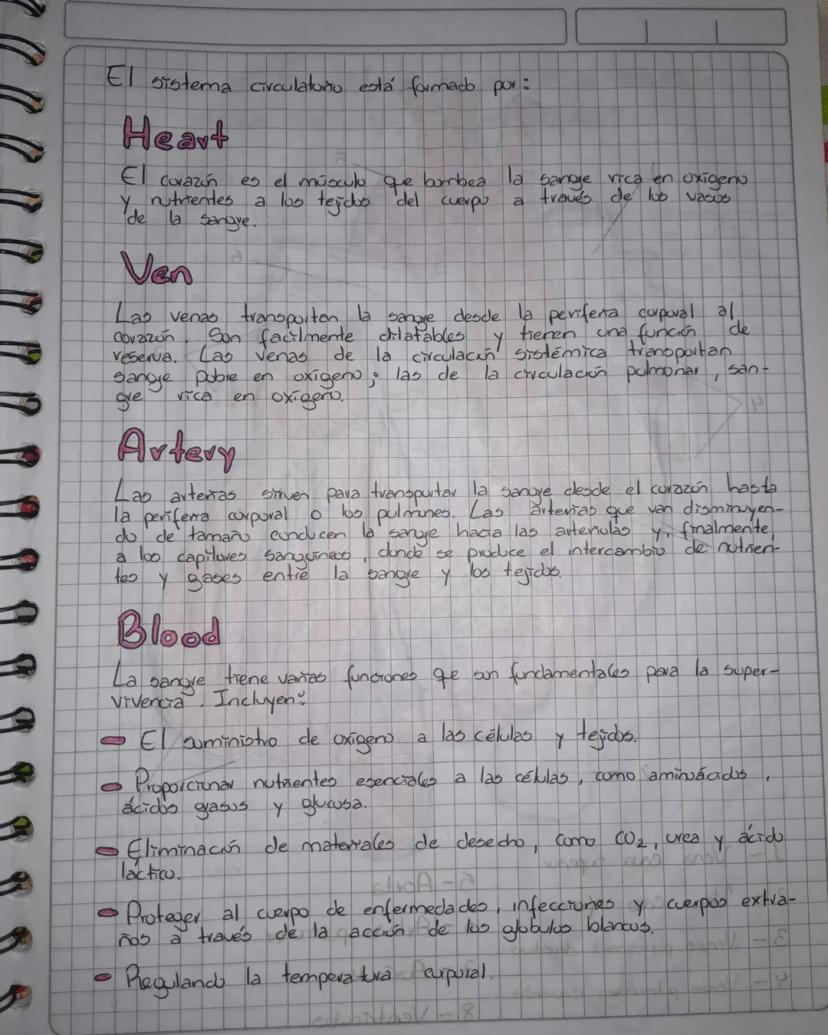 El sistema circulatorio está formado por:
Heart
El corazón es el músculo que bombea la sangre rica en oxígeno
y nutrientes a los tejidos del cuerpo a través de los vasos
de la sangre.
Ven
Las venas transportan la sangre desde la periferia corporal al
corazón. Son facilmente dilatables y tienen una función de
reserva. Las venas de la circulación sistémica transportan
sangre pobre en oxígeno; las de la circulación pulmonar, san-
gre rica en oxígeno.
Artery
Las arterias sirven para transportar la sangre desde el corazón hasta
la periferia corporal o los pulmones. Las arterias que van disminuyen-
do de tamaño conducen la sangre hacia las arteriolas y, finalmente,
a los capilares sanguíneos, donde se produce el intercambio de nutrien-
tes y gases entre la sangre y los tejidos.
Blood
La sangre tiene varias funciones que son fundamentales para la super-
vivencia. Incluyen:
- El suministro de oxígeno a las células y tejidos.
- Proporcionar nutrientes esenciales a las células, como aminoácidos,
ácidos grasos y glucosa.
- Eliminación de materiales de desecho, como CO2, urea y ácido
láctico.
- Proteger al cuerpo de enfermedades, infecciones y cuerpos extra-
ños a través de la acción de los glóbulos blancos.
- Regulando la temperatura corporal.